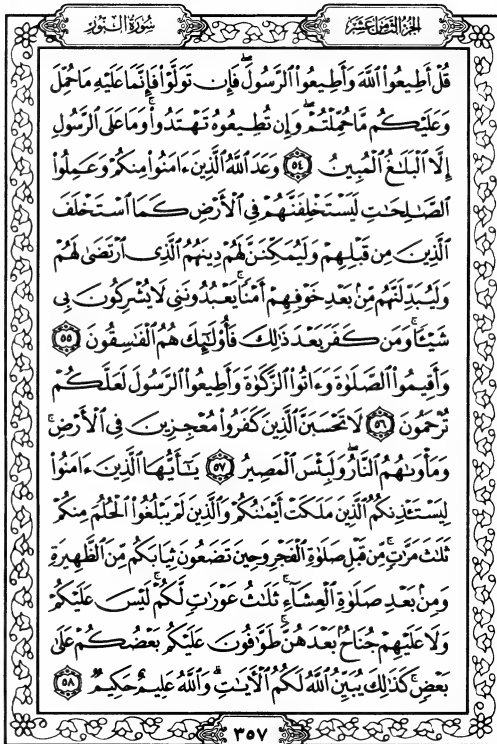 سُورَةُ النُّورِ
الجُزْءُ الثَّامِنَ عَشَرَ
قُلْ أَطِيعُوا۟ ٱللَّهَ وَأَطِيعُوا۟ ٱلرَّسُولَ ۖ فَإِن تَوَلَّوْا۟ فَإِنَّمَا عَلَيْهِ مَا حُمِّلَ
وَعَلَيْكُم مَّا حُمِّلْتُمْ ۖ وَإِن تُطِيعُوهُ تَهْتَدُوا۟ ۚ وَمَا عَلَى ٱلرَّسُولِ
إِلَّا ٱلْبَلَـٰغُ ٱلْمُبِينُ ٥٤ وَعَدَ ٱللَّهُ ٱلَّذِينَ ءَامَنُوا۟ مِنكُمْ وَعَمِلُوا۟
ٱلصَّـٰلِحَـٰتِ لَيَسْتَخْلِفَنَّهُمْ فِى ٱلْأَرْضِ كَمَا ٱسْتَخْلَفَ
ٱلَّذِينَ مِن قَبْلِهِمْ وَلَيُمَكِّنَنَّ لَهُمْ دِينَهُمُ ٱلَّذِى ٱرْتَضَىٰ لَهُمْ
وَلَيُبَدِّلَنَّهُم مِّنۢ بَعْدِ خَوْفِهِمْ أَمْنًا ۚ يَعْبُدُونَنِى لَا يُشْرِكُونَ بِى
شَيْـًٔا ۚ وَمَن كَفَرَ بَعْدَ ذَٰلِكَ فَأُو۟لَـٰٓئِكَ هُمُ ٱلْفَـٰسِقُونَ ٥٥
وَأَقِيمُوا۟ ٱلصَّلَوٰةَ وَءَاتُوا۟ ٱلزَّكَوٰةَ وَأَطِيعُوا۟ ٱلرَّسُولَ لَعَلَّكُمْ
تُرْحَمُونَ ٥٦ لَا تَحْسَبَنَّ ٱلَّذِينَ كَفَرُوا۟ مُعْجِزِينَ فِى ٱلْأَرْضِ ۚ
وَمَأْوَىٰهُمُ ٱلنَّارُ ۖ وَلَبِئْسَ ٱلْمَصِيرُ ٥٧ يَـٰٓأَيُّهَا ٱلَّذِينَ ءَامَنُوا۟
لِيَسْتَـْٔذِنكُمُ ٱلَّذِينَ مَلَكَتْ أَيْمَـٰنُكُمْ وَٱلَّذِينَ لَمْ يَبْلُغُوا۟ ٱلْحُلُمَ مِنكُمْ
ثَلَـٰثَ مَرَّٰتٍ ۚ مِّن قَبْلِ صَلَوٰةِ ٱلْفَجْرِ وَحِينَ تَضَعُونَ ثِيَابَكُم مِّنَ ٱلظَّهِيرَةِ
وَمِنۢ بَعْدِ صَلَوٰةِ ٱلْعِشَآءِ ۚ ثَلَـٰثُ عَوْرَٰتٍ لَّكُمْ ۚ لَيْسَ عَلَيْكُمْ
وَلَا عَلَيْهِمْ جُنَاحٌۢ بَعْدَهُنَّ ۚ طَوَّٰفُونَ عَلَيْكُم بَعْضُكُمْ عَلَىٰ
بَعْضٍ ۚ كَذَٰلِكَ يُبَيِّنُ ٱللَّهُ لَكُمُ ٱلْـَٔايَـٰتِ ۗ وَٱللَّهُ عَلِيمٌ حَكِيمٌ ٥٨
٣٥٧